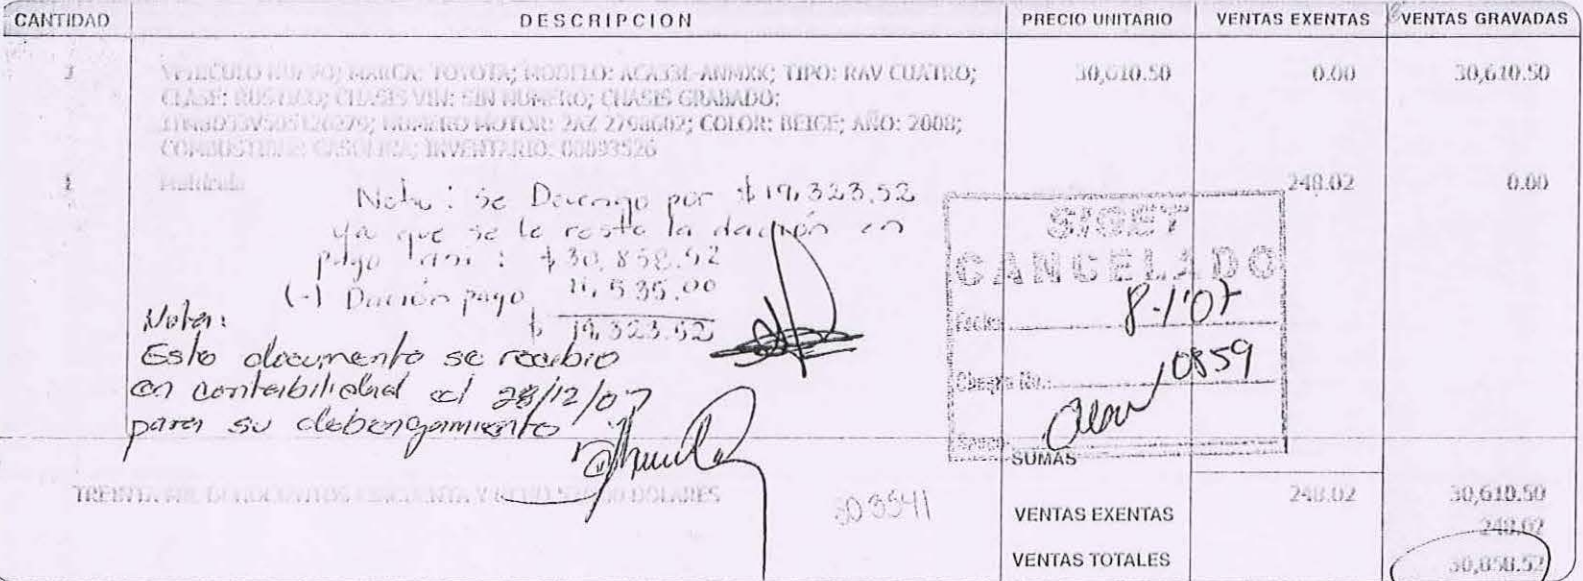 CANTIDAD DESCRIPCION PRECIO UNITARIO VENTAS EXENTAS VENTAS GRAVADAS
1 VEHICULO NUEVO; MARCA: TOYOTA; MODELO: ACA33L-ANMXK; TIPO: RAV CUATRO; 30,610.50 0.00 30,610.50
CLASE: RUSTICO; CHASIS VIN: SIN NUMERO; CHASIS GRABADO:
NUMERO MOTOR: 2AZ 2798602; COLOR: BEIGE; AÑO: 2008;
COMBUSTIBLE: GASOLINA; INVENTARIO: 00093526
1 Matrícula 248.02 0.00
Nota: se Devengo por $19,323.52
ya que se le resta la dación en
pago $30,858.52
(-) Dación pago 11,535.00
$ 19,323.52
Nota:
Esto documento se recibio
en contabilidad el 28/12/07
para su debengamiento
SIGET
CANCELADO
Fecha: 8-1'07
Cheque No.: 10859
Banco:
SUMAS 248.02 30,610.50
TREINTA MIL OCHOCIENTOS CINCUENTA Y OCHO DOLARES
303541
VENTAS EXENTAS 248.02
VENTAS TOTALES 30,858.52